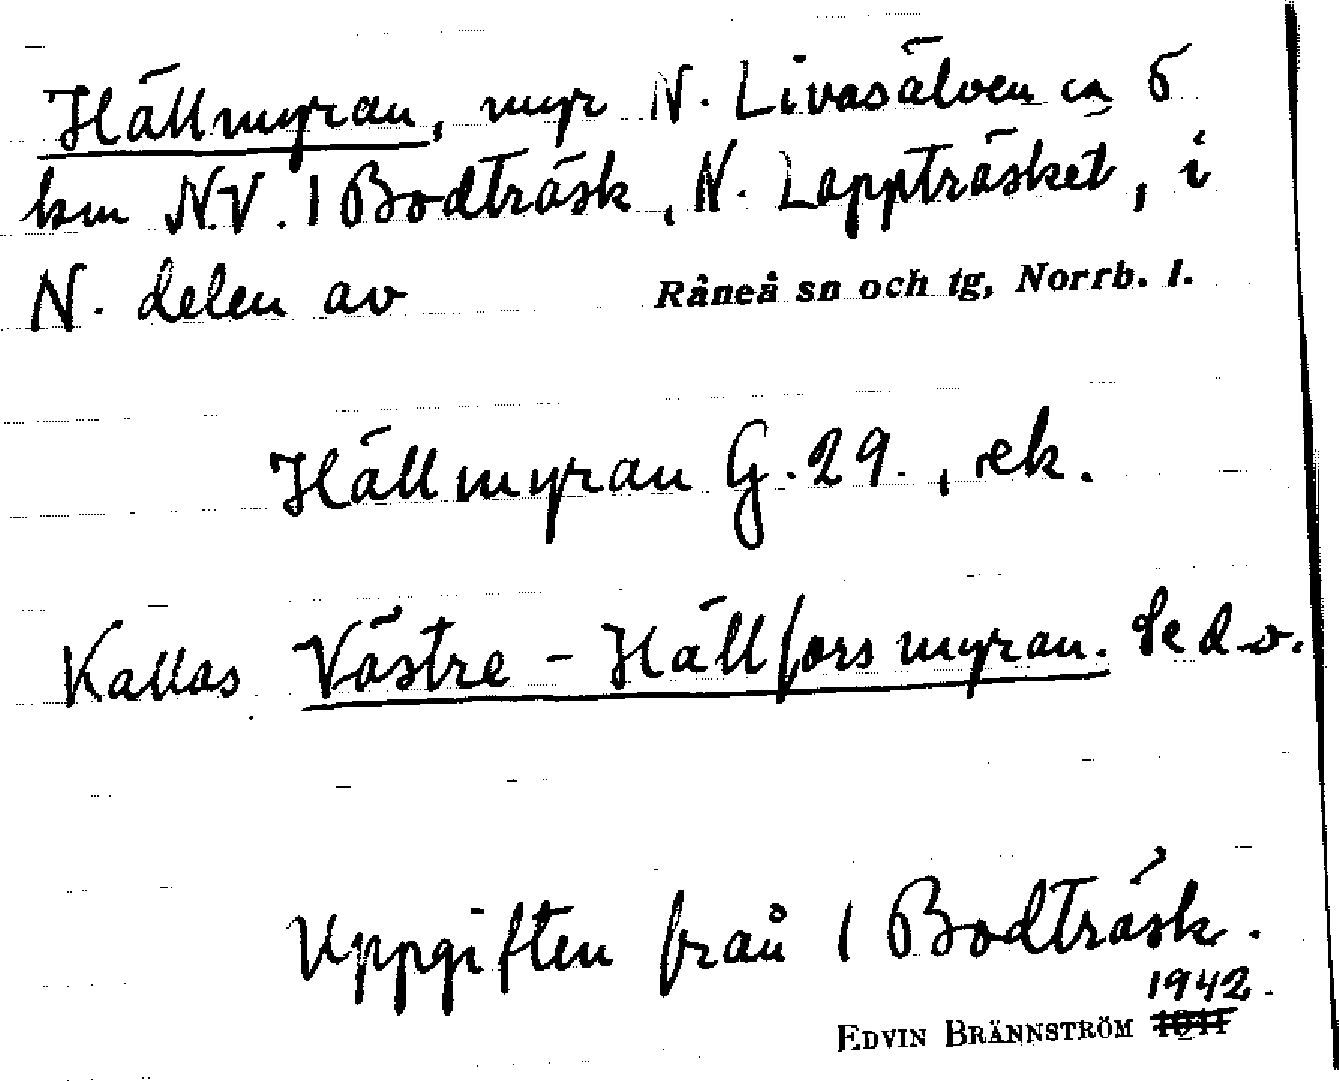 Hällmyran, myr N. Livasälven ca 5
km NV. 1 Bodträsk, N. Lappträsket, i
N. delen av Råneå sn och tg, Norrb. l.
Hällmyran G. 29., ek.
Kallas Västre-Hällforsmyran. Se d.o.
Uppgiften från 1 Bodträsk.
1942.
EDVIN BRÄNNSTRÖM 1941